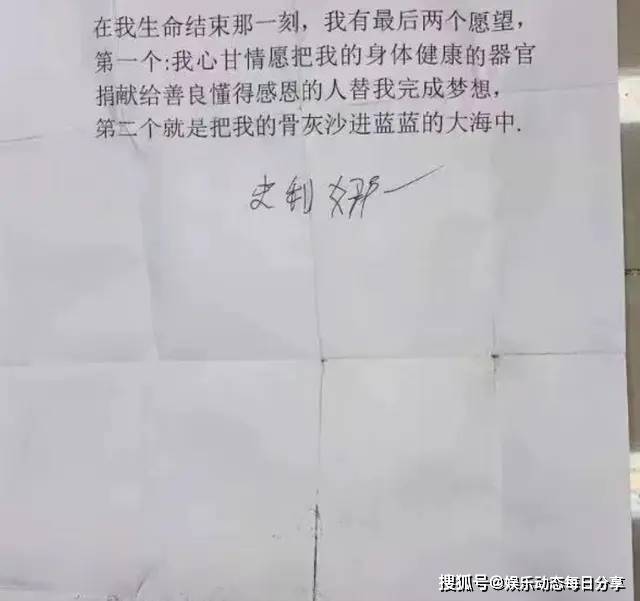 在我生命结束那一刻，我有最后两个愿望，
第一个:我心甘情愿把我的身体健康的器官
捐献给善良懂得感恩的人替我完成梦想，
第二个就是把我的骨灰沙进蓝蓝的大海中.
史利娜
搜狐号@娱乐动态每日分享